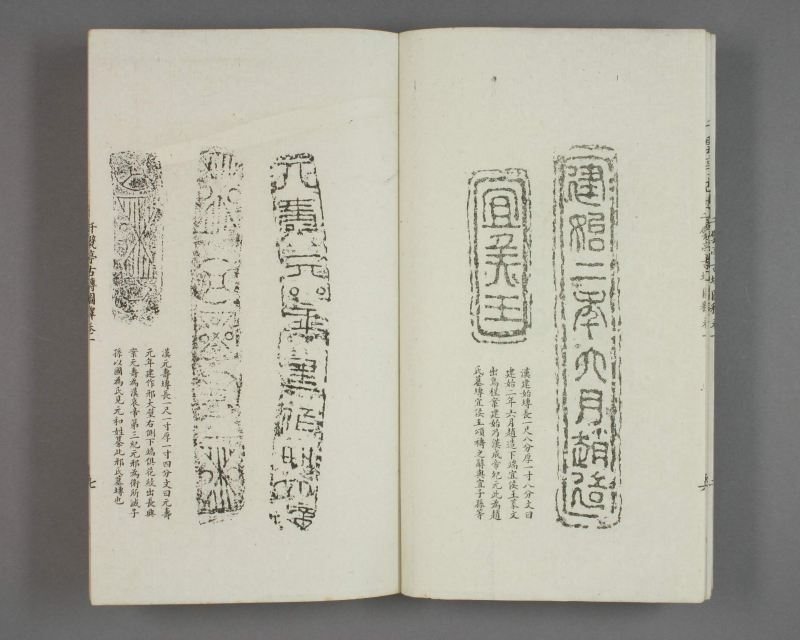 建始二年六月趙造
宜矦王
漢建始塼長一尺八分厚一寸八分文曰
建始二年六月趙造下端宜矦王篆文
出烏程案建始乃漢成帝紀元此為趙
氏墓塼宜矦王頌禱之辭與宜子孫等
元壽元年建作
漢元壽塼長一尺一寸厚一寸四分文曰元壽
元年建作邢大壁右側下端俱花紋出長興
案元壽為漢哀帝第三紀元邢為衛所滅子
孫以國為氏見元和姓纂此邢氏墓塼也
千甓亭古塼圖釋卷一
七